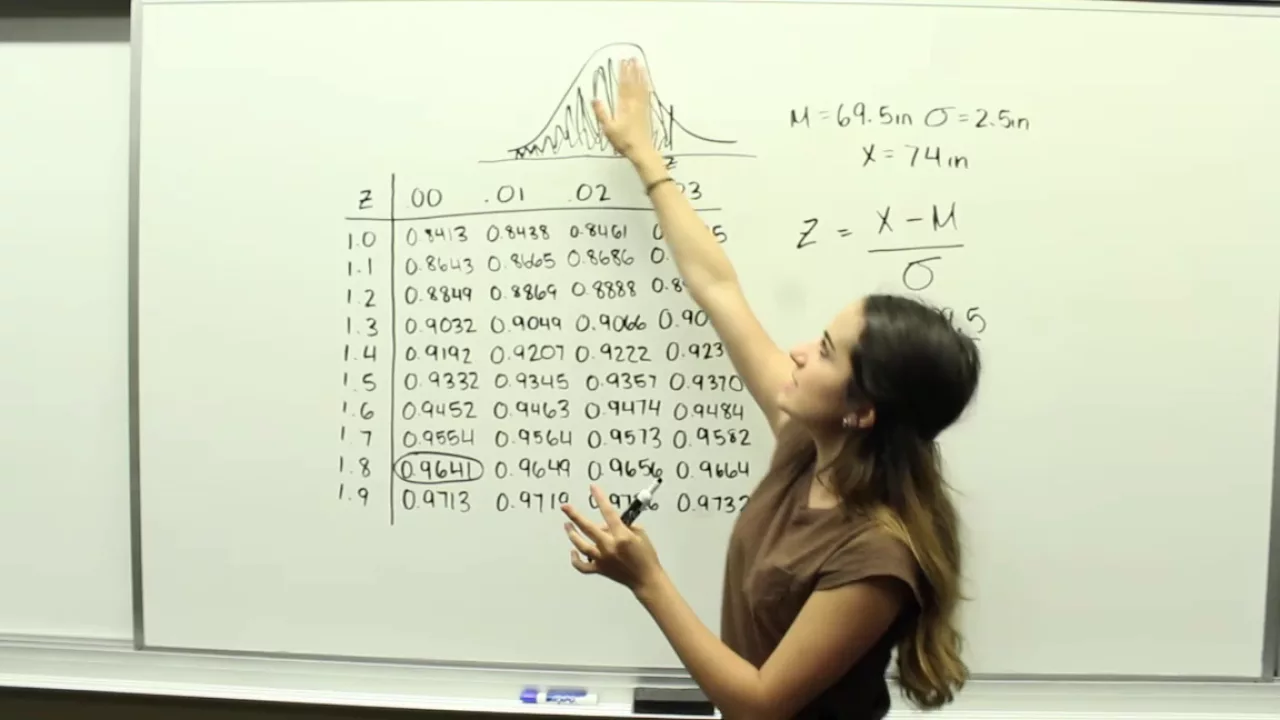 M = 69.5in σ = 2.5in
X = 74in
Z = X - M
σ
9.5
z
Z .00 .01 .02 03
1.0 0.8413 0.8438 0.8461
1.1 0.8643 0.8665 0.8686 0.
1.2 0.8849 0.8869 0.8888 0.8
1.3 0.9032 0.9049 0.9066 0.90
1.4 0.9192 0.9207 0.9222 0.923
1.5 0.9332 0.9345 0.9357 0.9370
1.6 0.9452 0.9463 0.9474 0.9484
1.7 0.9554 0.9564 0.9573 0.9582
1.8 0.9641 0.9649 0.9656 0.9664
1.9 0.9713 0.9719 0.9732